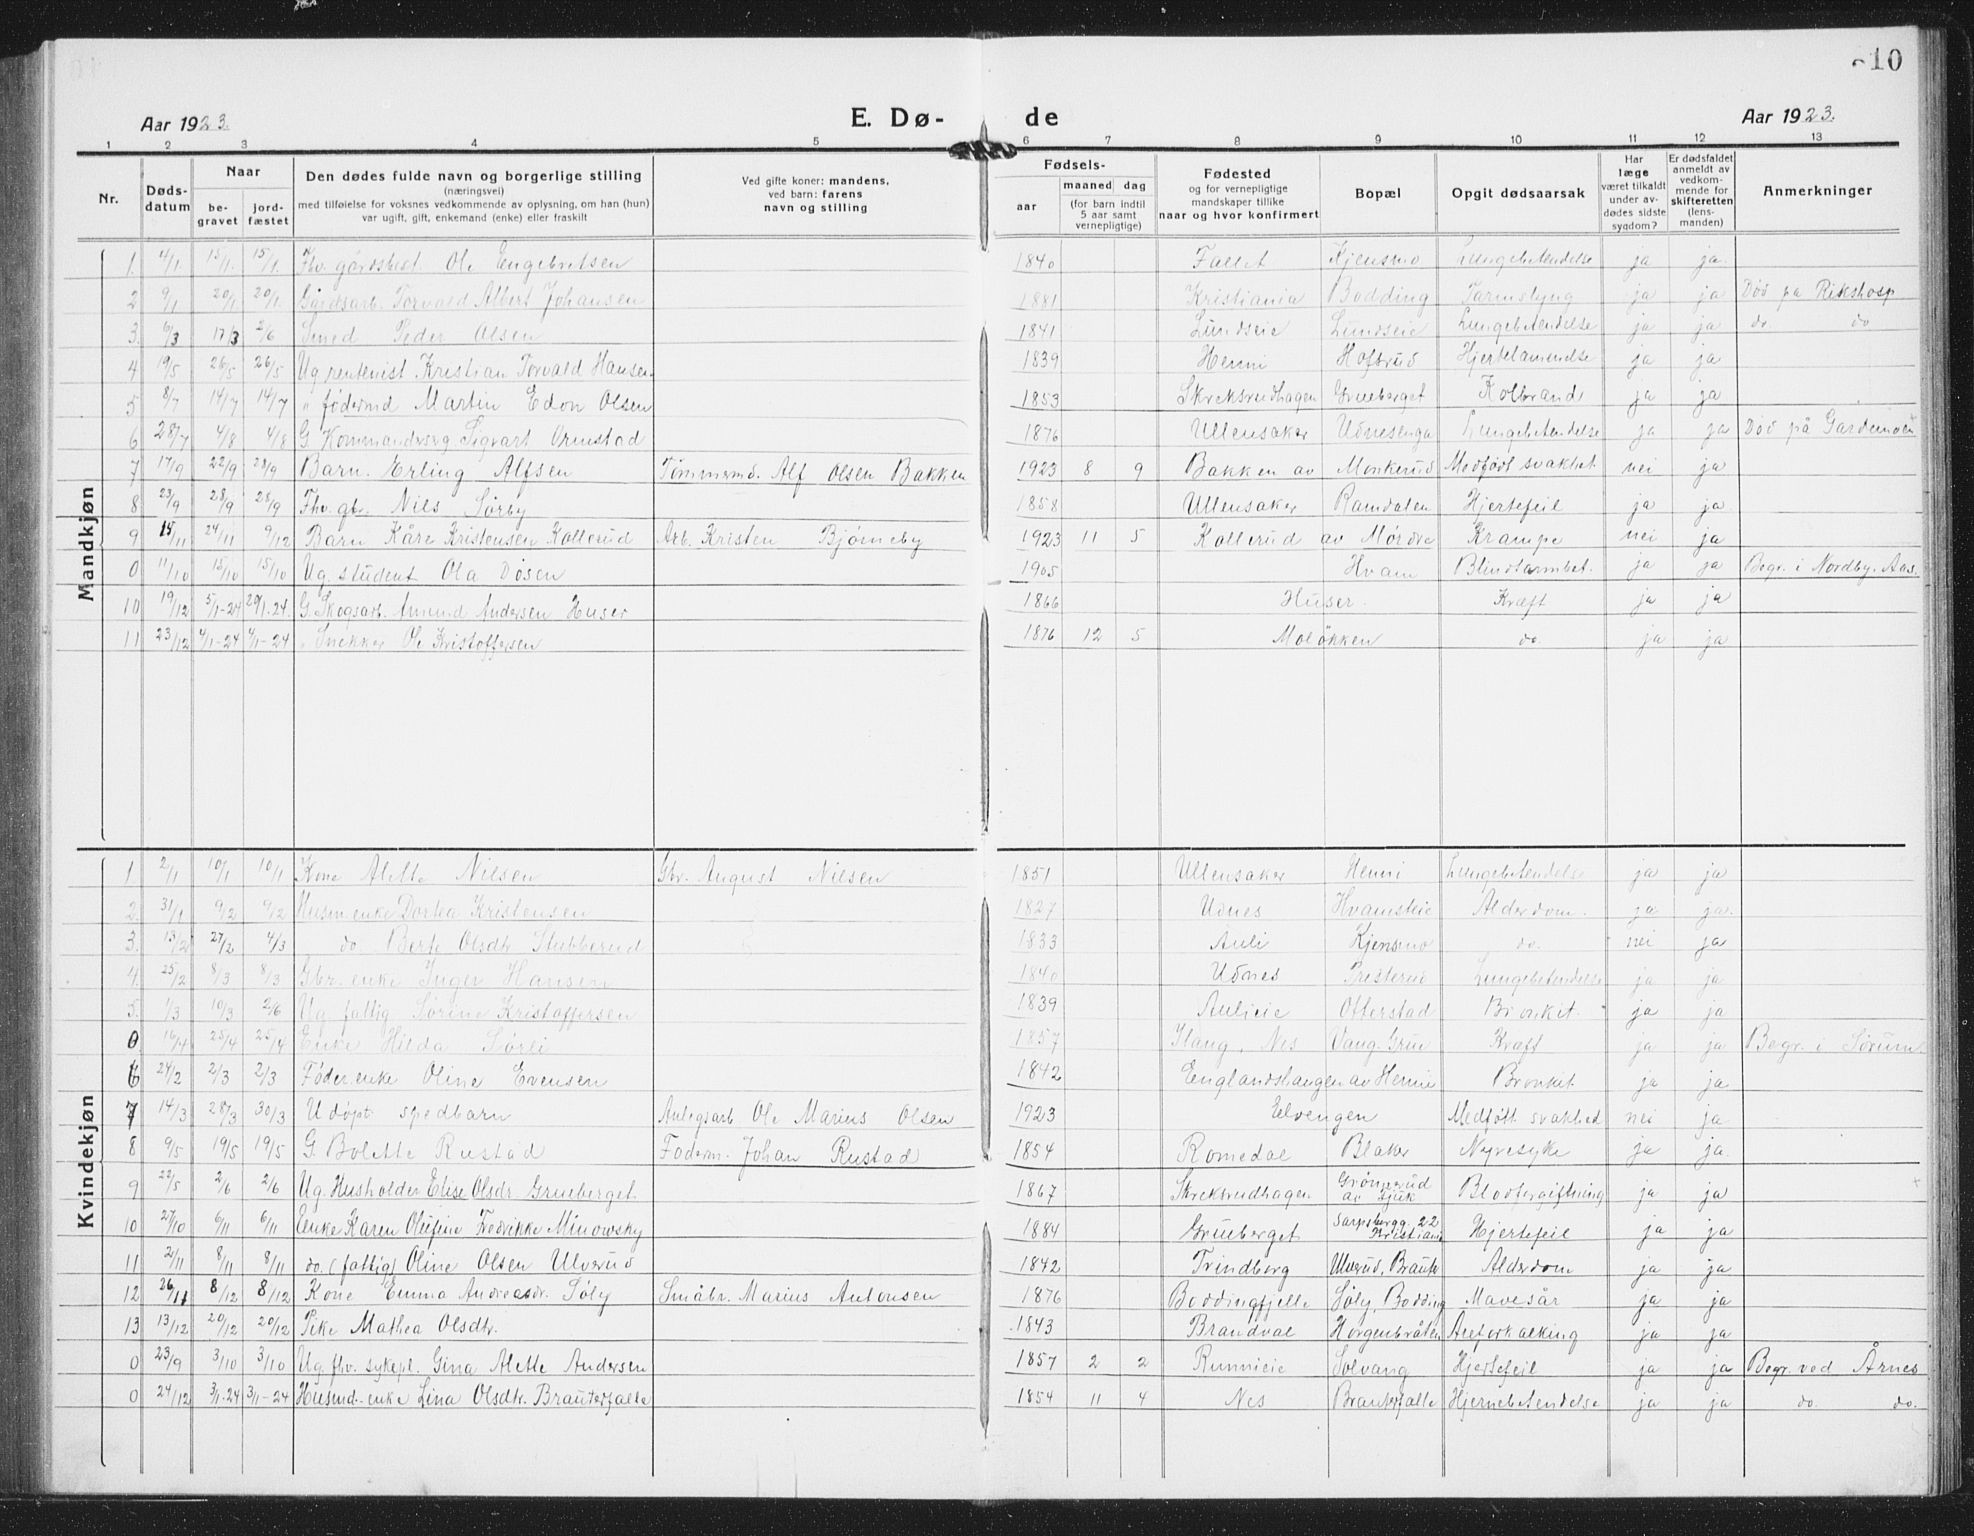 10
Aar 1923. E. Dø- de Aar 1923.
1 2 3 4 5 6 7 8 9 10 11 12 13
Nr. Døds-datum Naar be-gravet jord-fæstet Den dødes fulde navn og borgerlige stilling (næringsvei) med tilføielse for voksnes vedkommende av oplysning, om han (hun) var ugift, gift, enkemand (enke) eller fraskilt Ved gifte koner: mandens, ved barn: farens navn og stilling Fødsels- aar maaned dag (for barn indtil 5 aar samt vernepligtige) Fødested og for vernepligtige mandskaper tillike naar og hvor konfirmert Bopæl Opgit dødsaarsak Har læge været tilkaldt under av-dødes sidste sygdom? Er dødsfaldet anmeldt av vedkom-mende for skifteretten (lens-manden) Anmerkninger
Mandkjøn
1. 4/1. 15/1. 15/1. Fhv. gårdsbest. Ole Engebretsen 1840 Fallet Kjensmo Lungebetendelse ja ja.
2 9/1 20/1 20/1. Gårdsarb. Torvald Albert Johansen 1881 Kristiania Bodding Tarmslyng ja ja Død på Rikshosp
3. 6/3 17/3 2/6 Smed Peder Olsen 1841 Lundseie Lundseie Lungebetendelse ja ja do do
4 19/5 26/5 26/5 Ug. rentenist Kristian Torvald Hansen. 1839 Henni Hofsrud Hjertelamendse ja ja
5 8/7 14/7 14/7 " fødermd Martin Edon Olsen 1853 Skreksrudhagen Grueberget Kolbrand ja ja
6 28/7 4/8 4/8 G. Kommandersrg. Sigvart Ormstad 1876 Ullensaker Udnesenga Lungebetendelse ja ja Død på Gardemoen
7 17/9 22/9 23/9 Barn. Erling Alfsen Tømmermd. Alf Olsen Bakken 1923 8 9 Bakken av Monkerud Medfødt svakhet nei ja
8 23/9 28/9 28/9 Fhv. gbr. Nils Sørby 1858 Ullensaker Ramdalen Hjertefeil ja ja
9 15/11 24/11 9/12 Barn Kåre Kristensen Kollerud Arb. Kristen Bjørneby 1923 11 5 Kollerud av Mørdre Krampe nei ja
0 11/10 15/10 15/10 Ug. student Ola Døsen 1905 Hvam Blindtarmbet. ja ja Begr. i Nordby. Aas.
10 19/12 5/1-24 20/1-24. G. Skogsarb. Amund Andersen Huser 1866 Huser. Kræft ja ja
11 23/12 4/1-24 4/1-24 " Snekker Ole Kristoffersen 1876 12 5 Moløkken do. ja ja
Kvindekjøn
1. 2/1 10/1 10/1 Kone Alette Nilsen Gbr. August Nilsen 1851 Ullensaker Henni Lungebetendelse ja ja
2. 31/1 9/2 9/2 Husm.enke Dortea Kristensen 1827 Udnes Hvamseie Alderdom. ja ja.
3. 13/2 27/2 4/3 do. Berte Olsdtr Stubberud 1833 Auli Kjensmo do. nei ja
4. 25/2 8/3 8/3 Gbr. enke Inger Hansen 1840 Udnes Presterud Lungebetendelse ja ja
5. 1/3 10/3 2/6 Ug. fattig Sørine Kristoffersen 1839 Aulieie Otterstad Bronkit. ja ja
0 16/4 25/4 25/4 Enke Hilda Sørli 1857 Ilang, Nes Vang. Grue Kræft ja ja Begr. i Sørum.
6 24/2 2/3 2/3 Føder.enke Oline Evensen 1842 Englandshaugen av Henni Bronkit ja ja
7 14/3 28/3 30/3 Udøpt spedbarn Anlegsarb Ole Marius Olsen 1923 Elvengen Medfødt svakhed nei ja
8 9/5 19/5 19/5 G. Bolette Rustad Føderm. Johan Rustad 1854 Romedal Blaker Nyresyke ja ja.
9 22/5 2/6 2/6 Ug. Husholder Elise Olsdr. Grueberget 1867 Skreksrudhagen Grønnerud av Hjuk Blodforgiftning ja ja
10 27/10 6/11 6/11 Enke Karen Olufine Fredrikke Minowsky 1884 Grueberget Sarpsbergg. 22 Kristiania Hjertefeil ja ja
11 2/11 8/11 8/11 do. (fattig) Oline Olsen Ulverud 1842 Trindberg Ulverud, Brauter Alderdom ja ja
12 26/11 8/12 8/12 Kone Emma Andreasdr. Søly Småbr. Marius Antonsen 1876 Boddingfjelle Søly, Bodding Mavesår ja ja
13 13/12 20/12 20/12 Pike Mathea Olsdtr. 1843 Brandval Horgenbråten Areforkalking ja ja
0 23/9 3/10 3/10 Ug. fhv. sykepl. Gina Alette Andersen 1857 2 2 Runnieie Solvang Hjertefeil ja ja Begr. ved Årnes
0 24/12 3/1-24 3/1-24 Husmd.-enke Lina Olsdtr. Brauterfalle 1854 11 4 Nes Brauterfalle Hjernebetendelse ja ja do. do.